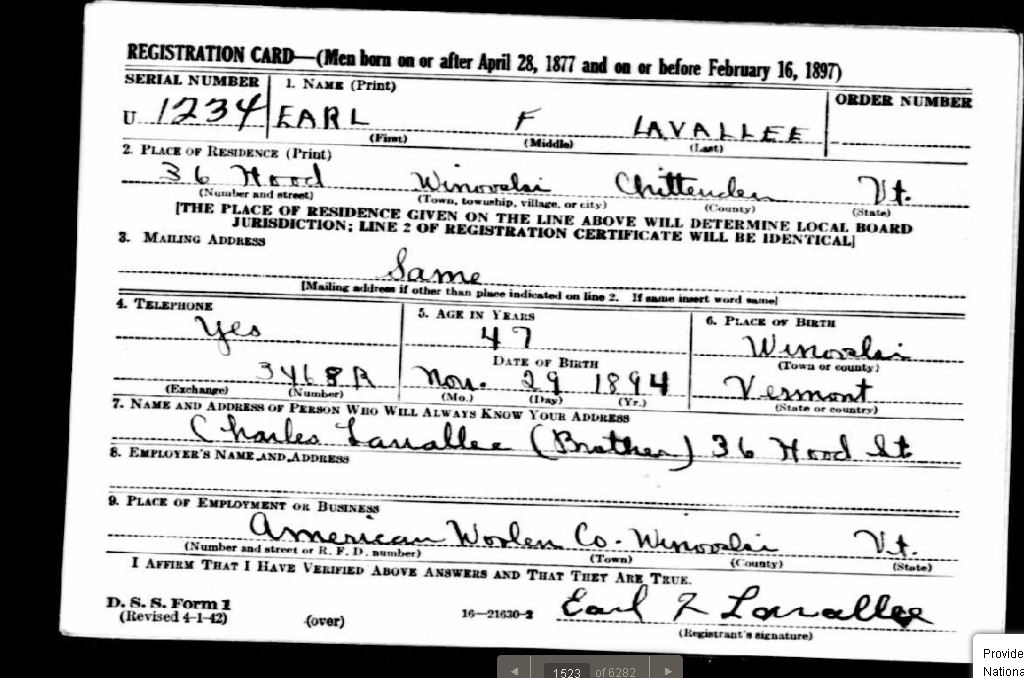 REGISTRATION CARD—(Men born on or after April 28, 1877 and on or before February 16, 1897)
SERIAL NUMBER 1. NAME (Print) ORDER NUMBER
U 1234 EARL F LAVALLEE
(First) (Middle) (Last)
2. PLACE OF RESIDENCE (Print)
36 Hood Winooski Chittenden Vt.
(Number and street) (Town, township, village, or city) (County) (State)
[THE PLACE OF RESIDENCE GIVEN ON THE LINE ABOVE WILL DETERMINE LOCAL BOARD
JURISDICTION; LINE 2 OF REGISTRATION CERTIFICATE WILL BE IDENTICAL]
3. MAILING ADDRESS
Same
[Mailing address if other than place indicated on line 2. If same insert word same]
4. TELEPHONE 5. AGE IN YEARS 6. PLACE OF BIRTH
Yes 47 Winooski
DATE OF BIRTH (Town or county)
3468R Nov. 29 1894 Vermont
(Exchange) (Number) (Mo.) (Day) (Yr.) (State or country)
7. NAME AND ADDRESS OF PERSON WHO WILL ALWAYS KNOW YOUR ADDRESS
Charles Lavallee (Brother) 36 Hood St.
8. EMPLOYER'S NAME AND ADDRESS
9. PLACE OF EMPLOYMENT OR BUSINESS
American Woolen Co. Winooski Vt.
(Number and street or R. F. D. number) (Town) (County) (State)
I AFFIRM THAT I HAVE VERIFIED ABOVE ANSWERS AND THAT THEY ARE TRUE.
D. S. S. Form 1
(Revised 4-1-42) (over) 16—21630-2 Earl F Lavallee
(Registrant's signature)
1523 of 6282
Provide
Nationa